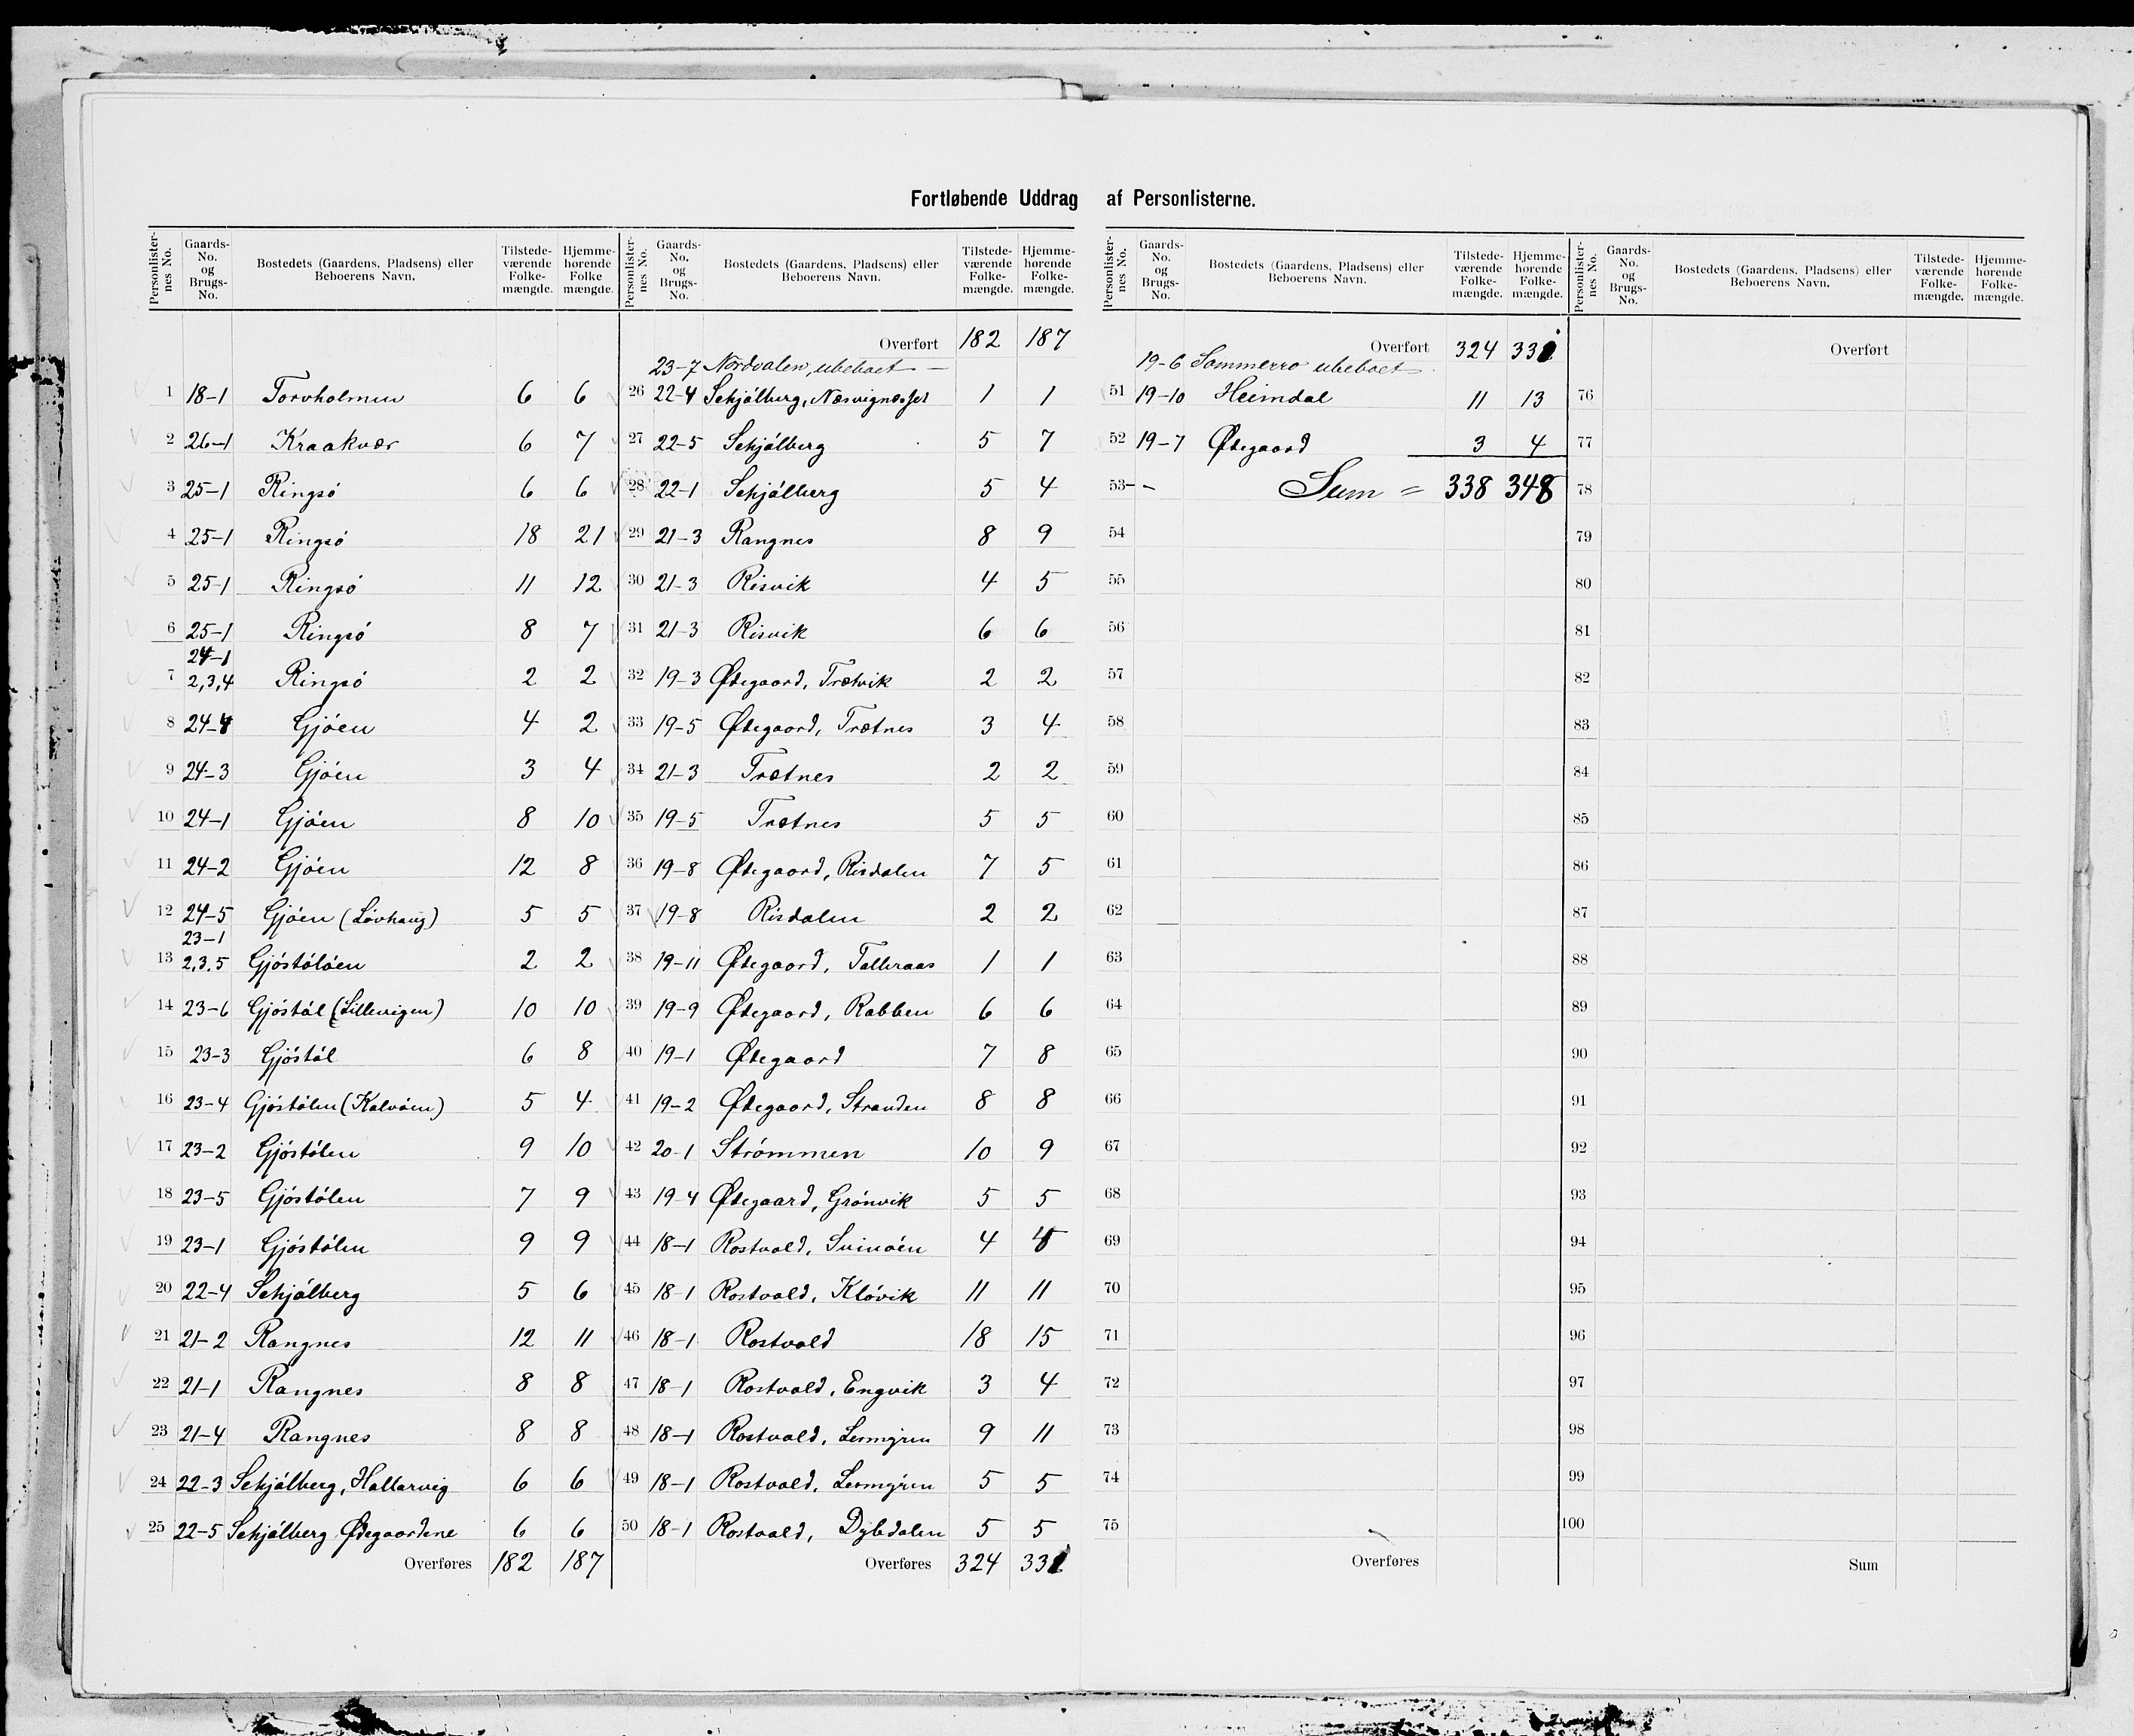 Fortløbende Uddrag af Personlisterne.
Personlister-nes No. Gaards-No. og Brugs-No. Bostedets (Gaardens, Pladsens) eller Beboerens Navn. Tilstede-værende Folke-mængde. Hjemme-hørende Folke mængde.
1 18-1 Torvholmen 6 6
2 26-1 Kraakvær 6 7
3 25-1 Ringsö 6 6
4 25-1 Ringsö 18 21
5 25-1 Ringsö 11 12
6 25-1 Ringsö 8 7
24-1
7 2,3,4 Ringsö 2 2
8 24-4 Gjöen 4 2
9 24-3 Gjöen 3 4
10 24-1 Gjöen 8 10
11 24-2 Gjöen 12 8
12 24-5 Gjöen (Lövhaug) 5 5
23-1
13 2,3,5 Gjöstölöen 2 2
14 23-6 Gjöstöl (Lillevigen) 10 10
15 23-3 Gjöstöl 6 8
16 23-4 Gjöstölen (Kalvöen) 5 4
17 23-2 Gjöstölen 9 10
18 23-5 Gjöstölen 7 9
19 23-1 Gjöstölen 9 9
20 22-4 Schjölberg 5 6
21 21-2 Rangnes 12 11
22 21-1 Rangnes 8 8
23 21-4 Rangnes 8 8
24 22-3 Schjölberg, Hallarvig 6 6
25 22-5 Schjölberg Ødegaardene 6 6
Overføres 182 187
Personlister-nes No. Gaards-No. og Brugs-No. Bostedets (Gaardens, Pladsens) eller Beboerens Navn. Tilstede-værende Folke-mængde. Hjemme-hørende Folke-mængde.
Overført 182 187
23-7 Nordvalen, ubeboet -
26 22-4 Schjölberg, Næsvignesset 1 1
27 22-5 Schjölberg 5 7
28 22-1 Schjölberg 5 4
29 21-3 Rangnes 8 9
30 21-3 Risvik 4 5
31 21-3 Risvik 6 6
32 19-3 Ødegaard, Trætvik 2 2
33 19-5 Ødegaard, Trætnes 3 4
34 21-3 Trætnes 2 2
35 19-5 Trætnes 5 5
36 19-8 Ødegaard, Risdalen 7 5
37 19-8 Risdalen 2 2
38 19-11 Ødegaard, Talleraas 1 1
39 19-9 Ødegaard, Rabben 6 6
40 19-1 Ødegaard 7 8
41 19-2 Ødegaard, Stranden 8 8
42 20-1 Strömmen 10 9
43 19-4 Ødegaard, Grönvik 5 5
44 18-1 Rostvold, Svinöen 4
45 18-1 Rostvold, Klövik 11 11
46 18-1 Rostvold 18 15
47 18-1 Rostvold, Engvik 3 4
48 18-1 Rostvold, 9 11
49 18-1 Rostvold, 5 5
50 18-1 Rostvold, Dybdalen 5 5
Overføres 324 331
Personlister-nes No. Gaards-No. og Brugs-No. Bostedets (Gaardens, Pladsens) eller Beboerens Navn. Tilstede-værende Folke-mængde. Hjemme-hørende Folke-mængde.
Overført 324 331
19-6 Sommerro ubeboet -
51 19-10 Heimdal 11 13
52 19-7 Ødegaard 3 4
53 - - Sum = 338 348
54
55
56
57
58
59
60
61
62
63
64
65
66
67
68
69
70
71
72
73
74
75
Overføres
Personlister-nes No. Gaards-No. og Brugs-No. Bostedets (Gaardens, Pladsens) eller Beboerens Navn. Tilstede-værende Folke-mængde. Hjemme-hørende Folke-mængde.
Overført
76
77
78
79
80
81
82
83
84
85
86
87
88
89
90
91
92
93
94
95
96
97
98
99
100
Sum